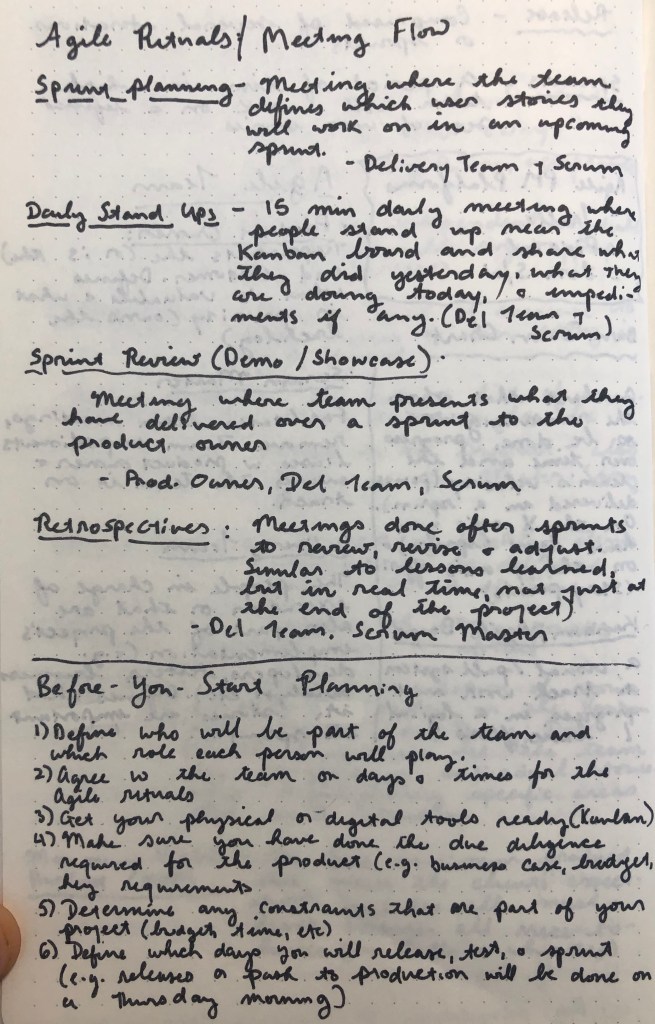 Agile Rituals/ Meeting Flow
Sprint planning - Meeting where the team
defines which user stories they
will work on in an upcoming
sprint.
- Delivery Team + Scrum
Daily Stand Ups - 15 min daily meeting where
people stand up near the
Kanban board and share what
they did yesterday, what they
are doing today, & impedi-
ments if any. (Del Team +
Scrum)
Sprint Review (Demo / Showcase).
Meeting where team presents what they
have delivered over a sprint to the
product owner
- Prod. Owner, Del Team, Scrum
Retrospectives: Meetings done after sprints
to review, revise & adjust.
Similar to lessons learned,
but in real time, not just at
the end of the project)
- Del Team, Scrum Master
Before-You-Start Planning
1) Define who will be part of the team and
which role each person will play.
2) Agree w the team on days & times for the
Agile rituals
3) Get your physical or digital tools ready (Kanban)
4) Make sure you have done the due diligence
required for the product (e.g. business case, budget,
key requirements
5) Determine any constraints that are part of your
project (budget, time, etc)
6) Define which days you will release, test, & sprint
(e.g. releases a push to production will be done on
a Thursday morning)